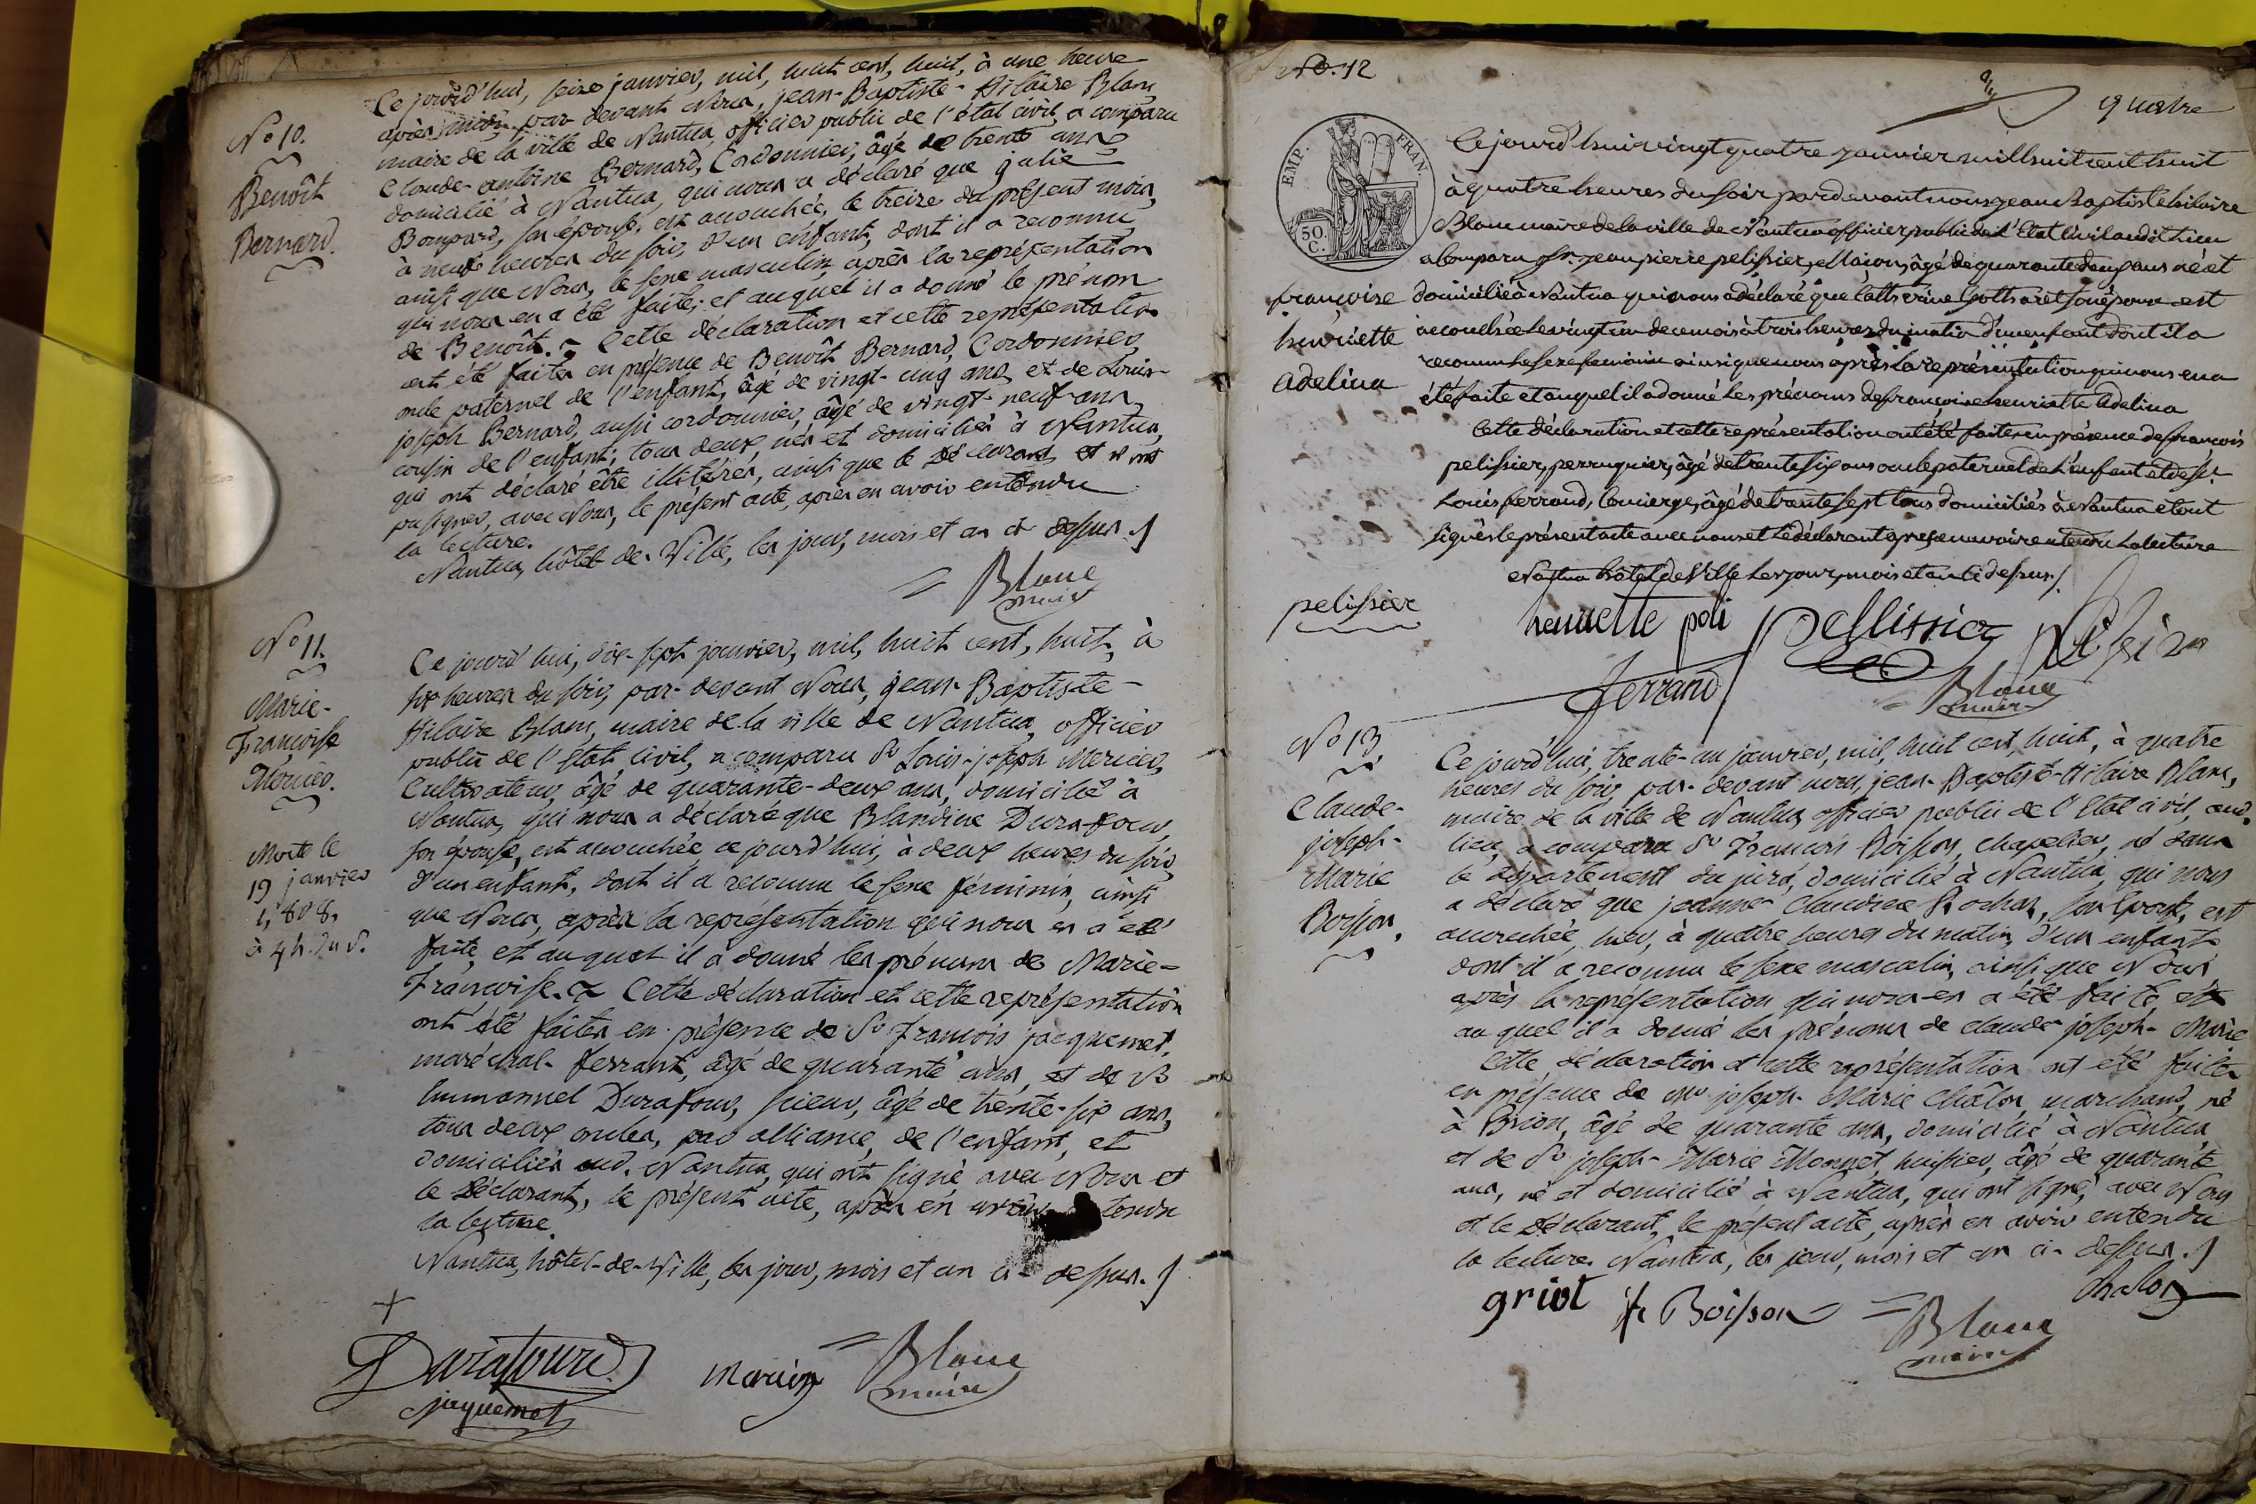 No 10.
Benoît
Bernard.
Ce jourd'hui, seize janvier, mil, huit cent, huit, à une heure
après midi, par devant Nous, jean-Baptiste-Hilaire Blanc,
maire de la ville de Nantua, officier public de l'état civil, a comparu
Claude-antoine Bernard, Cordonnier, âgé de trente ans
domicilié à Nantua, qui nous a déclaré que julie
Bompard, son épouse, est accouchée, le treize du présent mois,
à neuf heures du soir, d'un enfant, dont il a reconnu,
ainsi que Nous, le sexe masculin, après la représentation
qui nous en a été faite; et auquel il a donné le prénom
de Benoît. Cette déclaration et cette représentation
ont été faites en présence de Benoît Bernard, Cordonnier,
oncle paternel de l'enfant, âgé de vingt-cinq ans, et de Louis-
joseph Bernard, aussi cordonnier, âgé de vingt-neuf ans,
cousin de l'enfant; tous deux, nés et domiciliés à Nantua,
qui ont déclaré être illitérés, ainsi que le Déclarant, et n'ont
pu signer, avec Nous, le présent acte, après en avoir entendu
la lecture.
Nantua, hôtel-de-Ville, les jour, mois et an ci dessus.
Blanc
maire
No 11.
Marie-
Françoise
Mercier.
Morte le
19 janvier
1,808.
à 4 h. du s.
Ce jourd'hui, dix-sept janvier, mil, huit cent, huit, à
six heures du soir, par-devant Nous, jean-Baptiste-
Hilaire Blanc, maire de la ville de Nantua, officier
public de l'Etat civil, a comparu Sr Louis-joseph Mercier,
Cultivateur, âgé de quarante-deux ans, domicilié à
Nantua, qui nous a déclaré que Blandine Durafour,
son épouse, est accouchée ce jourd'hui, à deux heures du soir,
d'un enfant, dont il a reconnu le sexe féminin, ainsi
que Nous, après la représentation qui nous en a été
faite, et auquel il a donné les prénoms de Marie-
Françoise. Cette déclaration et cette représentation
ont été faites en présence de Sr François jacquemet,
maréchal-ferrant, âgé de quarante ans, et de Sr
Emmanuel Durafour, scieur, âgé de trente-six ans,
tous deux oncles, par alliance, de l'enfant, et
domiciliés aud. Nantua, qui ont signé avec Nous et
le Déclarant, le présent acte, après en avoir entendu
la lecture.
Nantua, hôtel-de-Ville, les jour, mois et an ci-dessus.
Durafour
jaquemet
Mercier
Blanc
maire
No. 12
quatre
EMP. FRAN.
50. C.
françoise
henriette
adelina
pelissier
Ce jourd'hui vingt quatre janvier mil huit cent huit
à quatre heures du soir pardevant nous jean Baptiste hilaire
Blanc maire de la ville de Nantua officier public de l'Etat Civil audit lieu
a Comparu Sr jean pierre pelissier, Maçon, âgé de quarante deux ans né et
domicilié à Nantua qui nous a déclaré que Catherine son épouse est
accouchée le vingt un de ce mois à trois heures du matin d'un enfant dont il a
reconnu le sexe féminin ainsi que nous après la représentation qui nous en a
été faite et auquel il a donné les prénoms de françoise henriette adelina
Cette déclaration et cette représentation ont été faites en présence de françois
pelissier, perruquier, âgé de trente six ans oncle paternel de l'enfant et de Sr
Louis ferrand, Concierge, âgé de trente sept tous domiciliés à Nantua et ont
signés le présent acte avec nous et le déclarant après en avoir entendu la lecture
Nantua hôtel de Ville les jour, mois et an ci dessus.
henriette poli
Pellissier
pelissier
ferrand
Blanc
maire
No 13.
Claude-
joseph-
Marie
Boisson.
Ce jourd'hui, trente-un janvier, mil, huit cent, huit, à quatre
heures du soir, par-devant nous, jean-Baptiste-Hilaire Blanc,
maire de la ville de Nantua, officier public de l'Etat civil, aud.
lieu, a comparu Sr François Boisson, chapelier, né dans
le département du jura, domicilié à Nantua, qui nous
a déclaré que jeanne-Claudine Rochas, son épouse, est
accouchée, hier, à quatre heures du matin, d'un enfant
dont il a reconnu le sexe masculin, ainsi que Nous
après la représentation qui nous en a été faite, et
auquel il a donné les prénoms de claude-joseph-Marie
Cette déclaration et cette représentation ont été faites
en présence de Mr joseph-Marie Châlon, marchand, né
à Brion, âgé de quarante ans, domicilié à Nantua,
et de Sr joseph-Marie Monnet, huissier, âgé de quarante
ans, né et domicilié à Nantua, qui ont signé, avec Nous
et le Déclarant, le présent acte, après en avoir entendu
la lecture. Nantua, les jour, mois et an ci-dessus.
griot
fr Boisson
Chalon
Blanc
maire